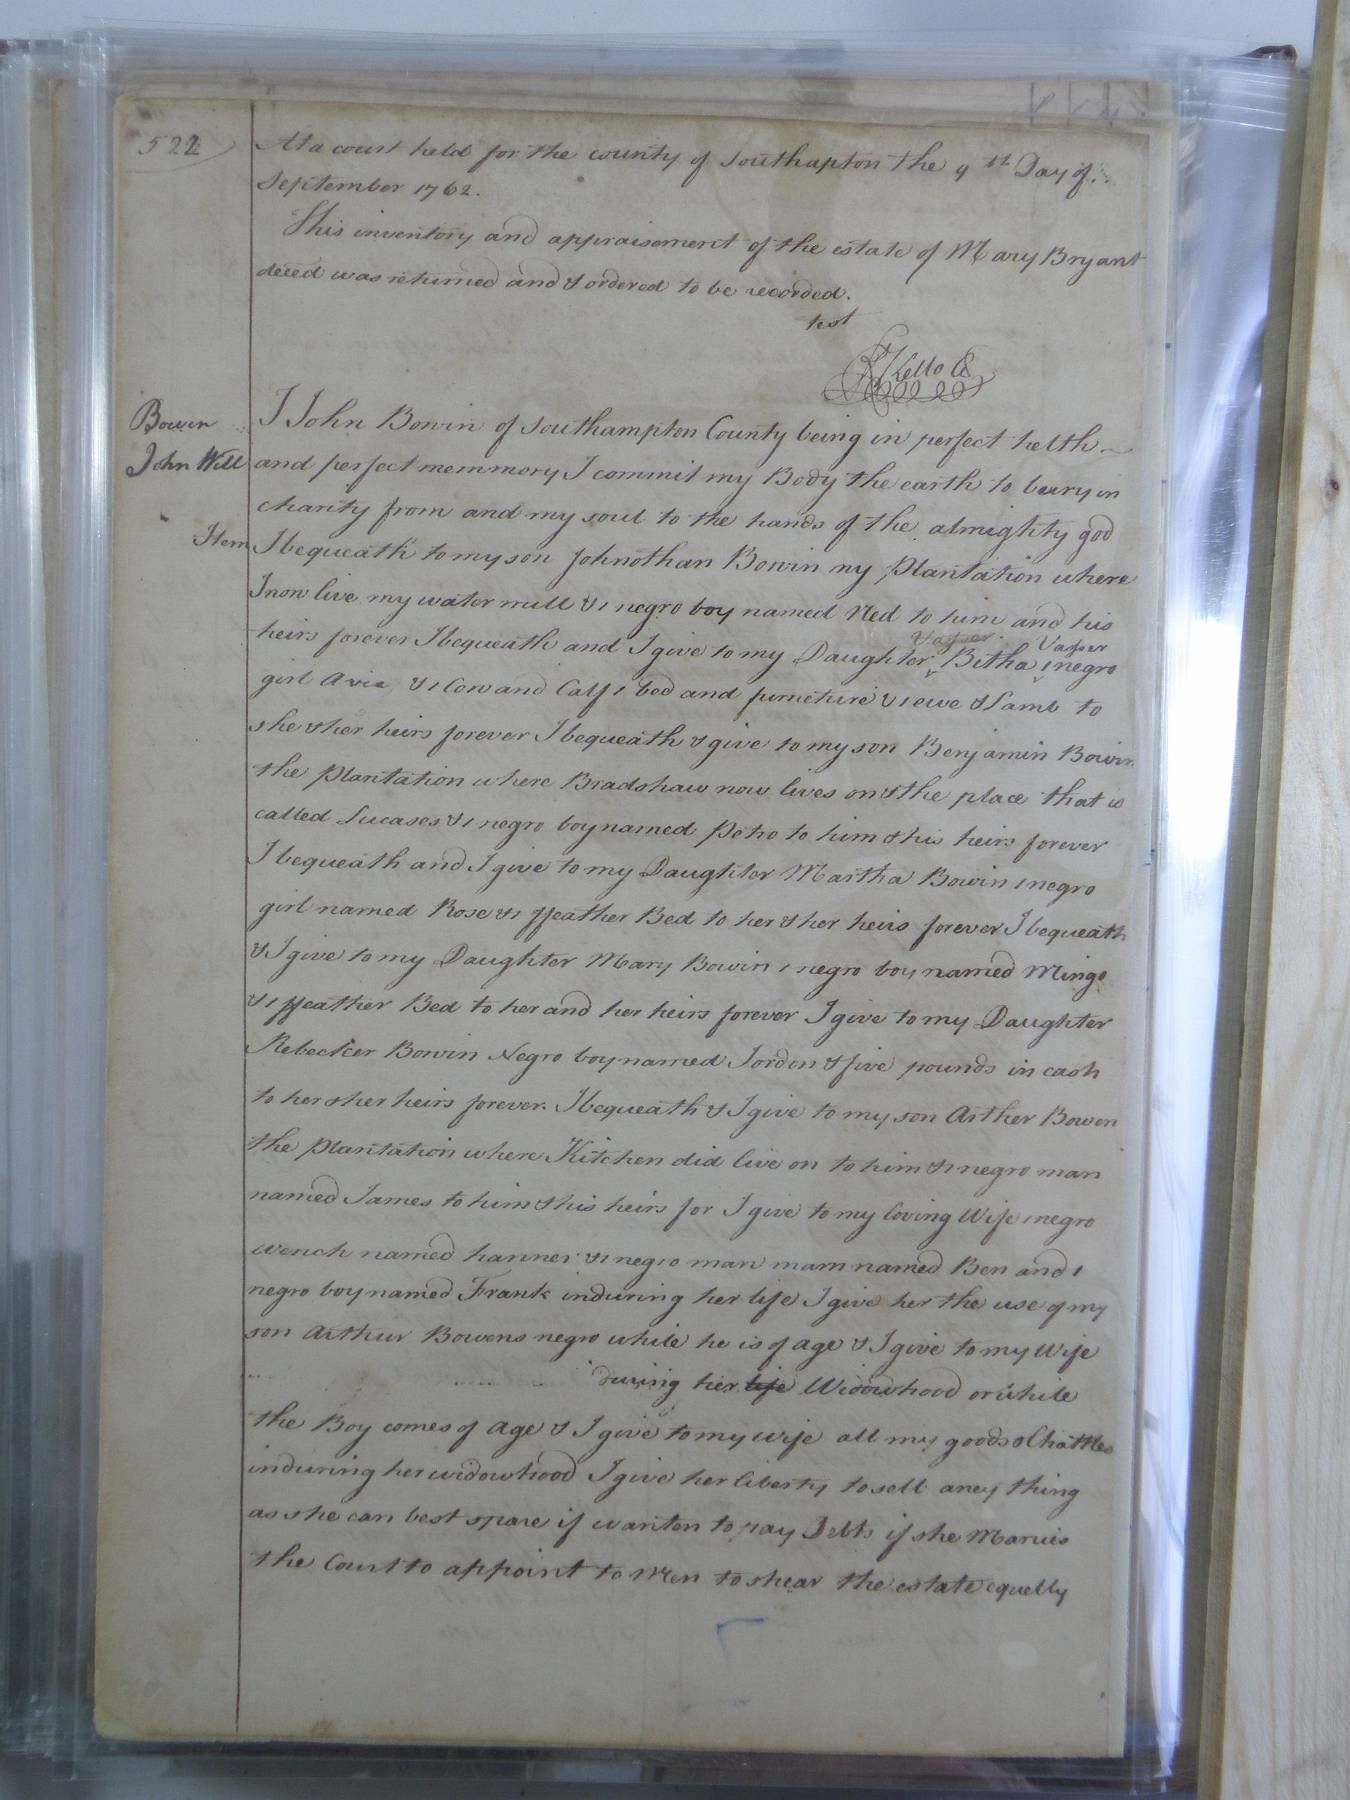 522
At a court held for the county of Southapton the 9th Day of
September 1762.
This inventory and appraisement of the estate of Mary Bryant
deced was returned and & ordered to be recorded.
test
R Kello Cl
Bowin
John Will
I John Bowin of Southampton County being in perfect helth
and perfect memmory I commit my Body the earth to beury in
charity from and my soul to the hands of the almighty god
Item I bequeath to my son Johnothan Bowin my Plantation where
I now live my water mill & 1 negro boy named Ned to him and his
Vasser Vasser
heirs forever I bequeath and I give to my Daughter Betha 1 negro
girl Avie & 1 Cow and Calf 1 bed and furneture & 1 ewe & Lamb to
she & her heirs forever I bequeath & give to my son Benjamin Bowin
the Plantation where Bradshaw now lives on & the place that is
called Lucases & 1 negro boy named Petro to him & his heirs forever
I bequeath and I give to my Daughter Martha Bowin 1 negro
girl named Rose & 1 ffeather Bed to her & her heirs forever I bequeath
& I give to my Daughter Mary Bowin 1 negro boy named Mingo
& 1 ffeather Bed to her and her heirs forever I give to my Daughter
Rebecker Bowin Negro boy named Jordon & five pounds in cash
to her & her heirs forever. I bequeath & I give to my son Arther Bowen
the Plantation where Kitchen did live on to him & 1 negro man
named James to him & his heirs for I give to my loving Wife 1 negro
wench named hanner & 1 negro man mam named Ben and 1
negro boy named Frank induring her life I give her the use of my
son Arthur Bowens negro while he is of age & I give to my Wife
during her life Widowhood or while
the Boy comes of age & I give to my wife all my goods & Chattles
induring her widowhood I give her liberty to sell aney thing
as she can best spare if wanten to pay Debts if she Marries
the Court to appoint to Men to shear the estate equelly